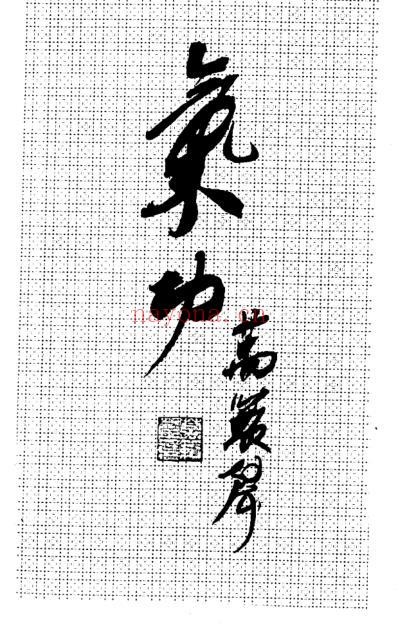 氣功
nayona.cn
萬籟聲